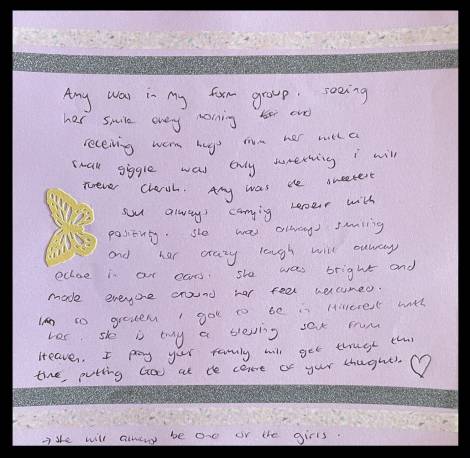 Amy was in my form group. seeing
her smile every morning and
receiving warm hugs from her with a
small giggle was truly something i will
forever cherish. Amy was the sweetest
soul always carrying herself with
positivity. she was always smiling
and her crazy laugh will always
echoe in our ears. she was bright and
made everyone around her feel welcomed.
Im so grateful I got to be in Hillcrest with
her. she is truly a blessing sent from
Heaven. I pray your family will get through this
time, putting God at the centre of your thoughts. ♡
→ she will always be one of the girls.